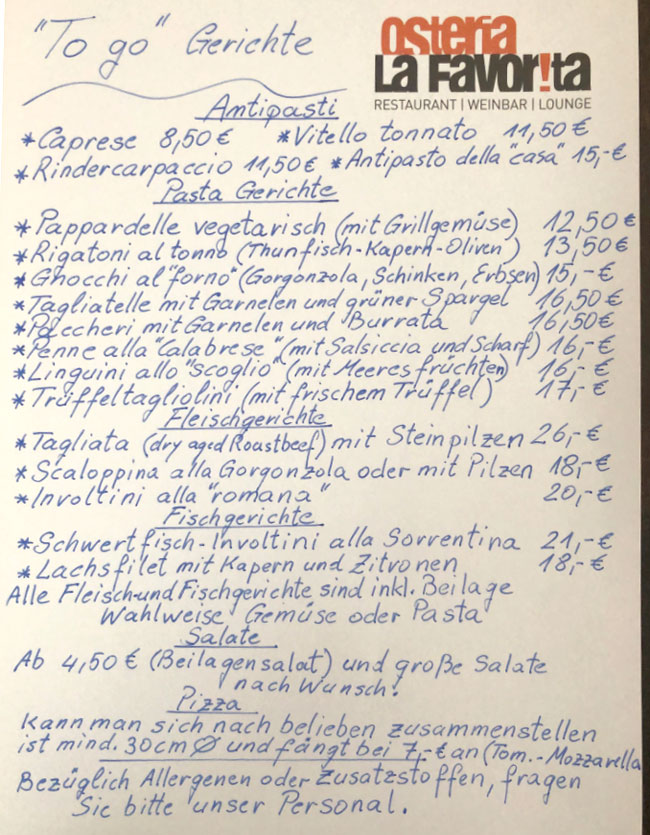 "To go" Gerichte
Osteria
La Favor!ta
RESTAURANT | WEINBAR | LOUNGE
Antipasti
* Caprese 8,50 € * Vitello tonnato 11,50 €
* Rindercarpaccio 11,50 € * Antipasto della "casa" 15,- €
Pasta Gerichte
* Pappardelle vegetarisch (mit Grillgemüse) 12,50 €
* Rigatoni al tonno (Thunfisch-Kapern-Oliven) 13,50 €
* Gnocchi al "forno" (Gorgonzola, Schinken, Erbsen) 15,- €
* Tagliatelle mit Garnelen und grüner Spargel 16,50 €
* Paccheri mit Garnelen und Burrata 16,50 €
* Penne alla "Calabrese" (mit Salsiccia und Scharf) 16,- €
* Linguini allo "scoglio" (mit Meeresfrüchten) 16,- €
* Trüffeltagliolini (mit frischem Trüffel) 17,- €
Fleischgerichte
* Tagliata (dry aged Roastbeef) mit Steinpilzen 26,- €
* Scaloppina alla Gorgonzola oder mit Pilzen 18,- €
* Involtini alla "romana" 20,- €
Fischgerichte
* Schwertfisch-Involtini alla Sorrentina 21,- €
* Lachsfilet mit Kapern und Zitronen 18,- €
Alle Fleisch-und Fischgerichte sind inkl. Beilage
Wahlweise Gemüse oder Pasta
Salate
Ab 4,50 € (Beilagensalat) und große Salate
nach Wunsch!
Pizza
Kann man sich nach belieben zusammenstellen
ist mind. 30cm Ø und fängt bei 7,- € an (Tom.-Mozzarella
Bezüglich Allergenen oder Zusatzstoffen, fragen
Sie bitte unser Personal.